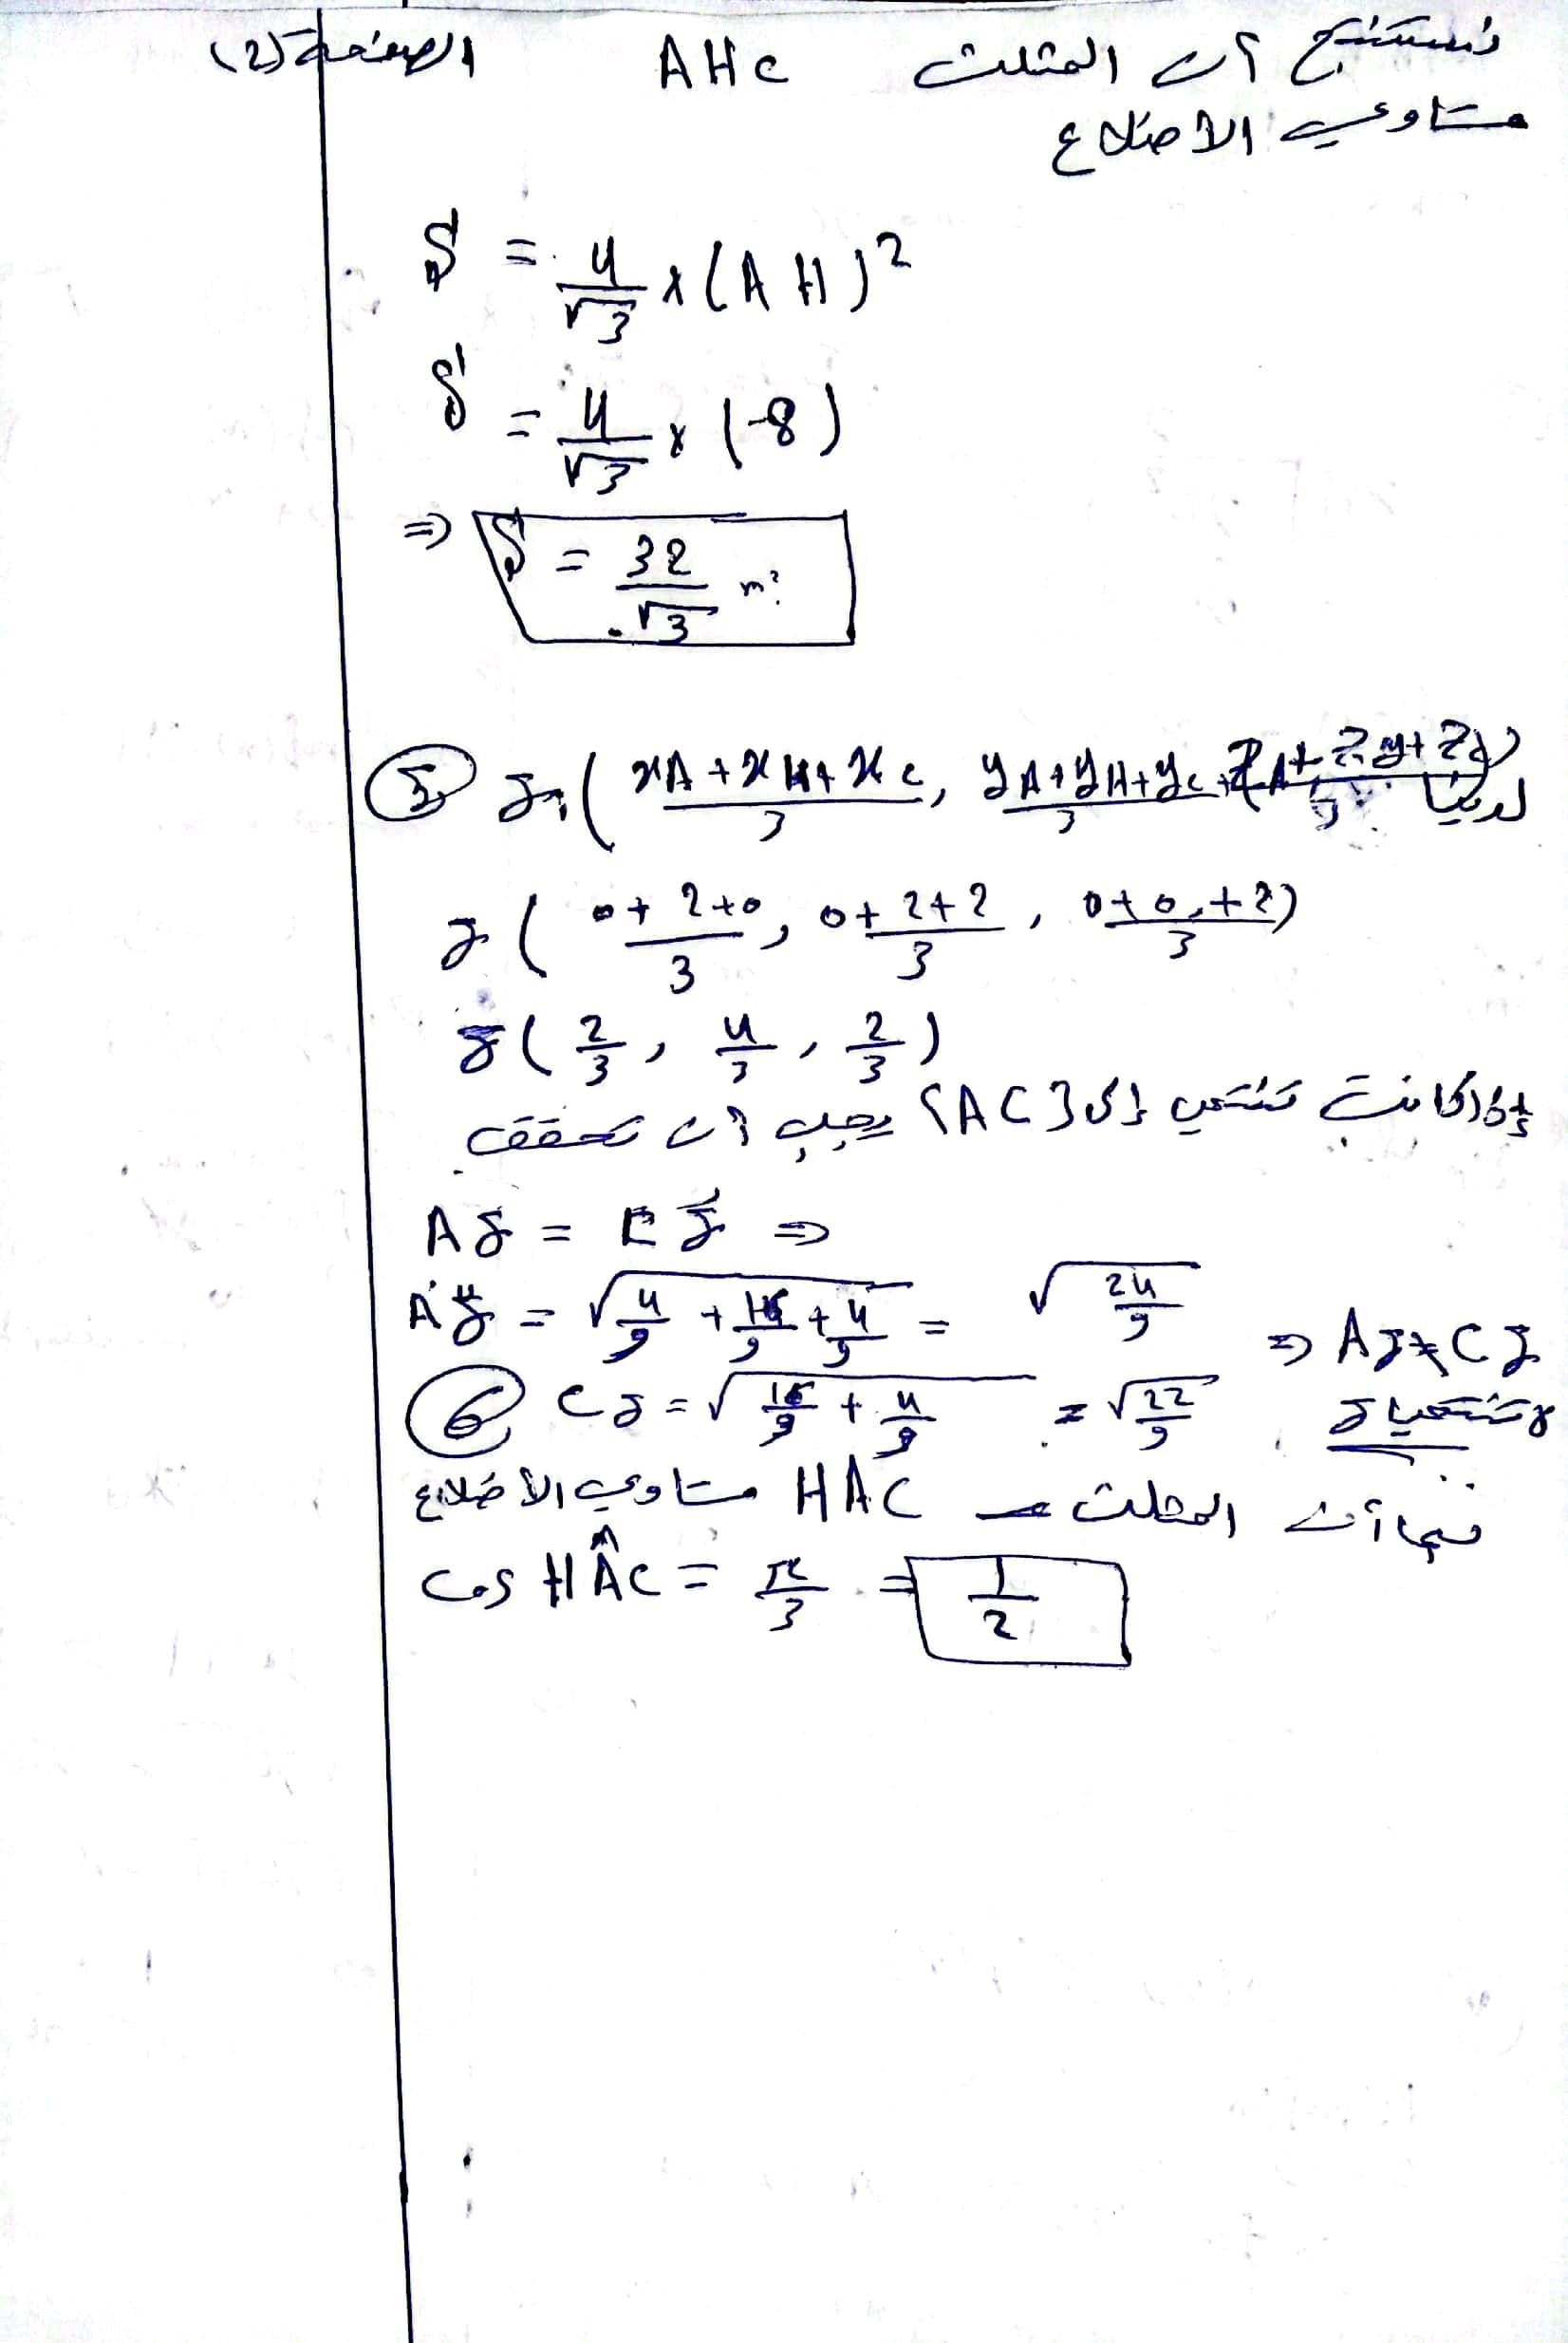 الصفحة (2)
نستنتج أن المثلث AHC
متساوي الأضلاع
S = 4/√3 × (AH)²
S = 4/√3 × (8)
⇒ S = 32/√3 m²
⑤ لدينا ((xA + xH + xC)/3, (yA + yH + yC)/3,
g ((0 + 2 + 0)/3, (0 + 2 + 2)/3, (0 + 0 + 2)/3)
g (2/3, 4/3, 2/3)
إذا كانت تنتمي إلى [AC] يجب أن تحقق
Ag = Cg ⇒
Ag = √(4/9 + 16/9 + 4/9) = √(24/9)
⇒ Ag ≠ Cg
⑥ Cg = √(16/9 + 4/9) = √(22/9)
بما أن المثلث HAC متساوي الأضلاع
cos HÂC = π/3 = 1/2